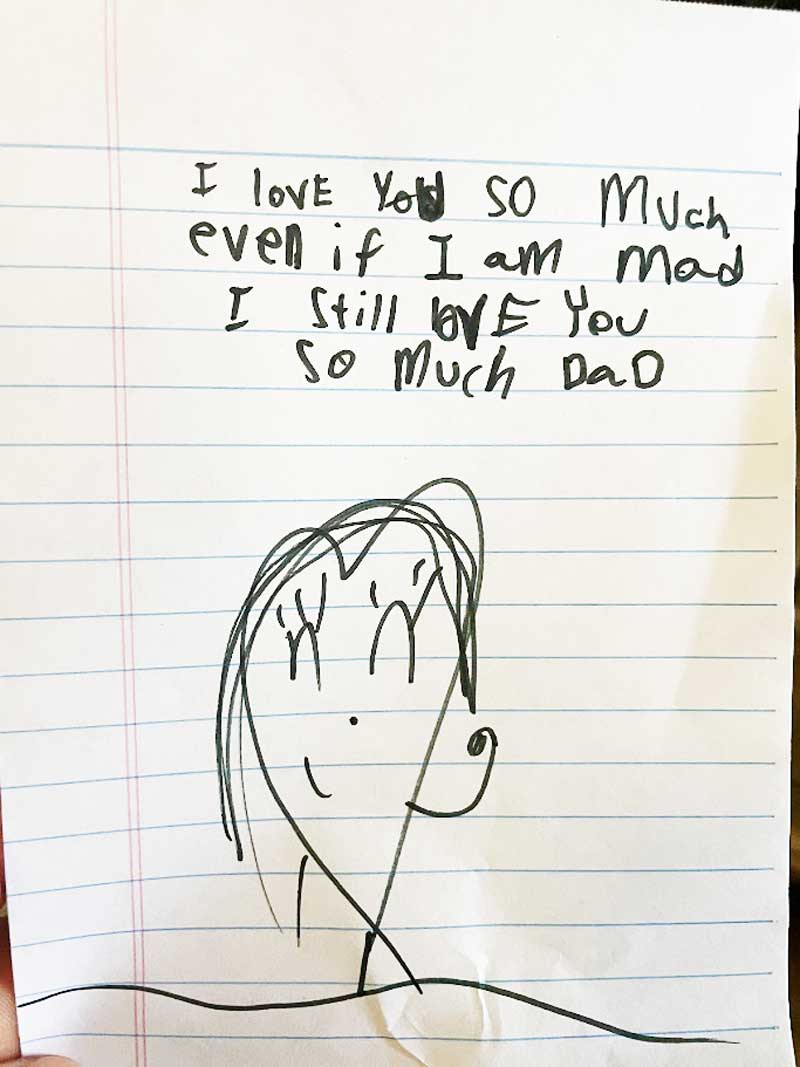 I lovE You SO MUch
even if I am mad
I still lovE You
so Much DaD